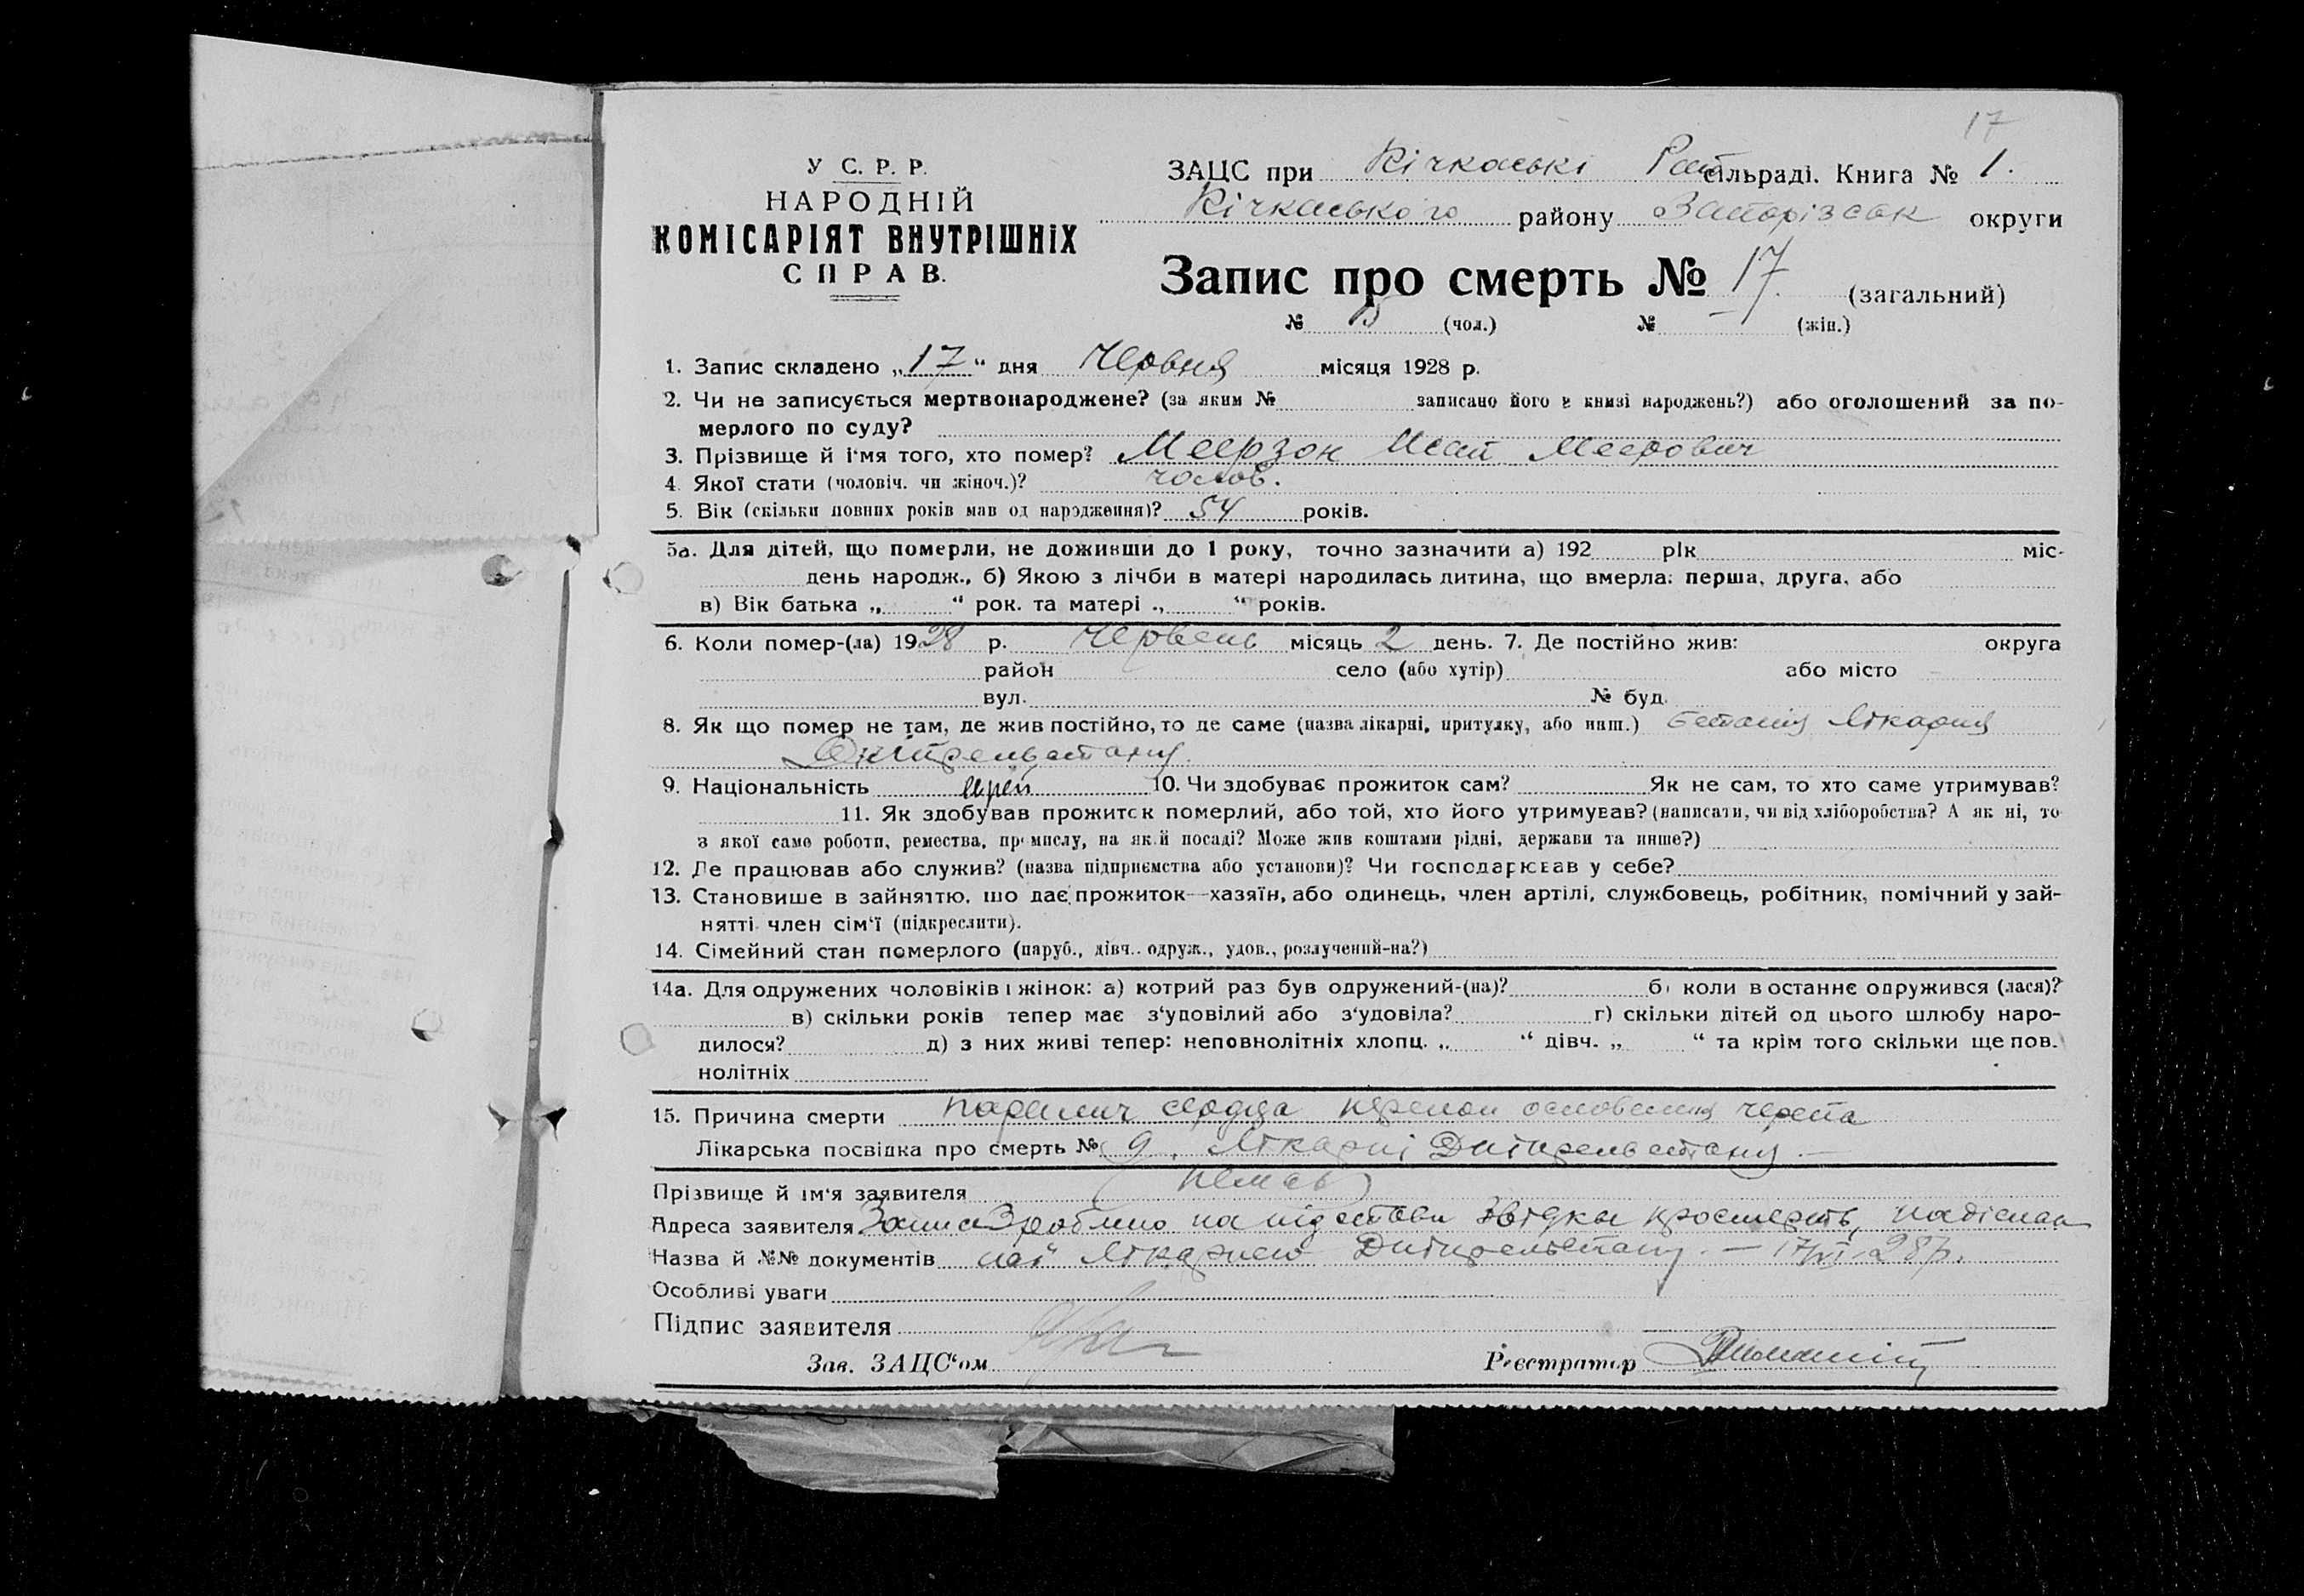 17
У С. Р. Р.
НАРОДНІЙ
КОМІСАРІЯТ ВНУТРІШНІХ
СПРАВ.
ЗАЦС при Кічкаські Рай сільраді. Книга № 1.
Кічкаського району Запорізськ округи
Запис про смерть № 17. (загальний)
№ 15 (чол.) № — (жін.)
1. Запис складено „17“ дня Червня місяця 1928 р.
2. Чи не записується мертвонароджене? (за яким № записано його в книзі народжень?) або оголошений за по-
мерлого по суду?
3. Прізвище й ім'я того, хто помер? Меерзон Меерович
4. Якої стати (чоловіч. чи жіноч.)? чолов.
5. Вік (скільки повних років мав од народження)? 54 років.
5а. Для дітей, що померли, не доживши до 1 року, точно зазначити а) 192 рік міс-
день народж., б) Якою з лічби в матері народилась дитина, що вмерла: перша, друга, або
в) Вік батька „ “ рок. та матері „ “ років.
6. Коли помер-(ла) 1928 р. Червень місяць 2 день. 7. Де постійно жив: округа
район село (або хутір) або місто
вул. № буд.
8. Як що помер не там, де жив постійно, то де саме (назва лікарні, притулку, або инш.) Лікарня
Дніпрельстану.
9. Національність еврей 10. Чи здобуває прожиток сам? Як не сам, то хто саме утримував?
11. Як здобував прожиток померлий, або той, хто його утримував? (написати, чи від хліборобства? А як ні, то
з якої саме роботи, ремества, промислу, на якій посаді? Може жив коштами рідні, держави та инше?)
12. Де працював або служив? (назва підприємства або установи)? Чи господарював у себе?
13. Становище в зайняттю, що дає прожиток—хазяїн, або одинець, член артілі, службовець, робітник, помічний у зай-
нятті член сім'ї (підкреслити).
14. Сімейний стан померлого (паруб., дівч., одруж., удов., розлучений-на?)
14а. Для одружених чоловіків і жінок: а) котрий раз був одружений-(на)? б) коли востаннє одружився (лася)?
в) скільки років тепер має з'удовілий або з'удовіла? г) скільки дітей од цього шлюбу наро-
дилося? д) з них живі тепер: неповнолітніх хлопц. „ “ дівч. „ “ та крім того скільки ще пов.
нолітніх
15. Причина смерти паралич сердца перелом основания черепа
Лікарська посвідка про смерть № 9. Лікарні Дніпрельстану.—
Прізвище й ім'я заявителя (Немає)
Адреса заявителя Запис Зроблено на підставі звідки про смерть, надіслан
Назва й №№ документів ної Лікарнею Дніпрельстану.— 17/VI-28р.
Особливі уваги
Підпис заявителя
Зав. ЗАЦС'ом
Реєстратор